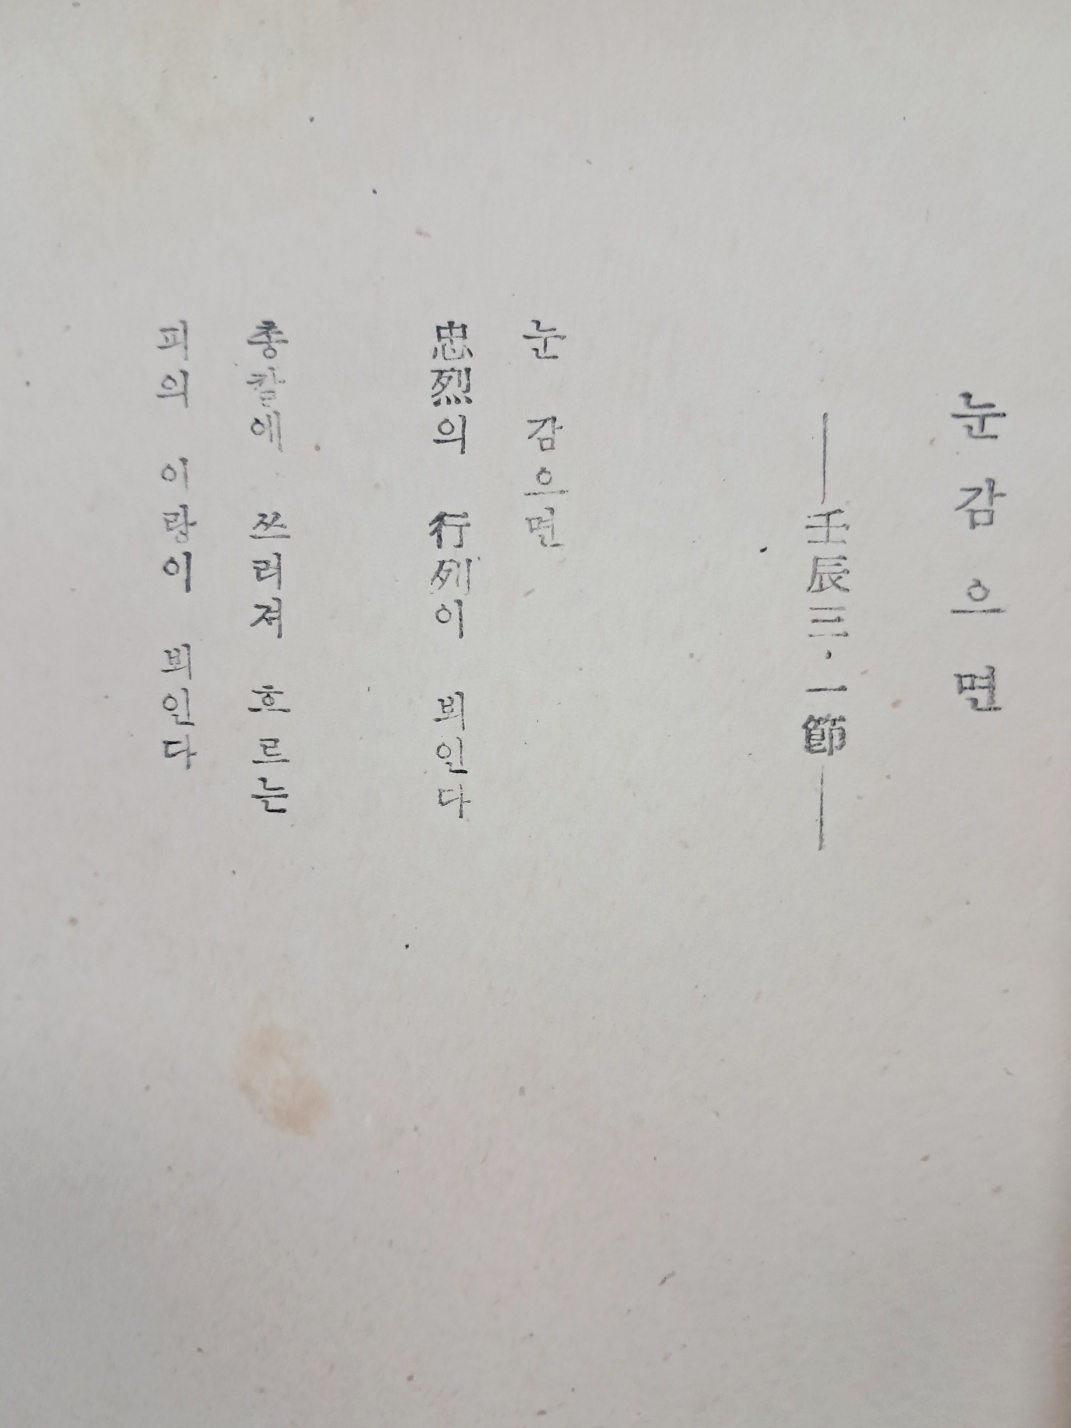 눈감으면
——壬辰三·一節——
눈 감으면
忠烈의 行列이 븨인다
총칼에 쓰러져 흐르는
피의 이랑이 븨인다